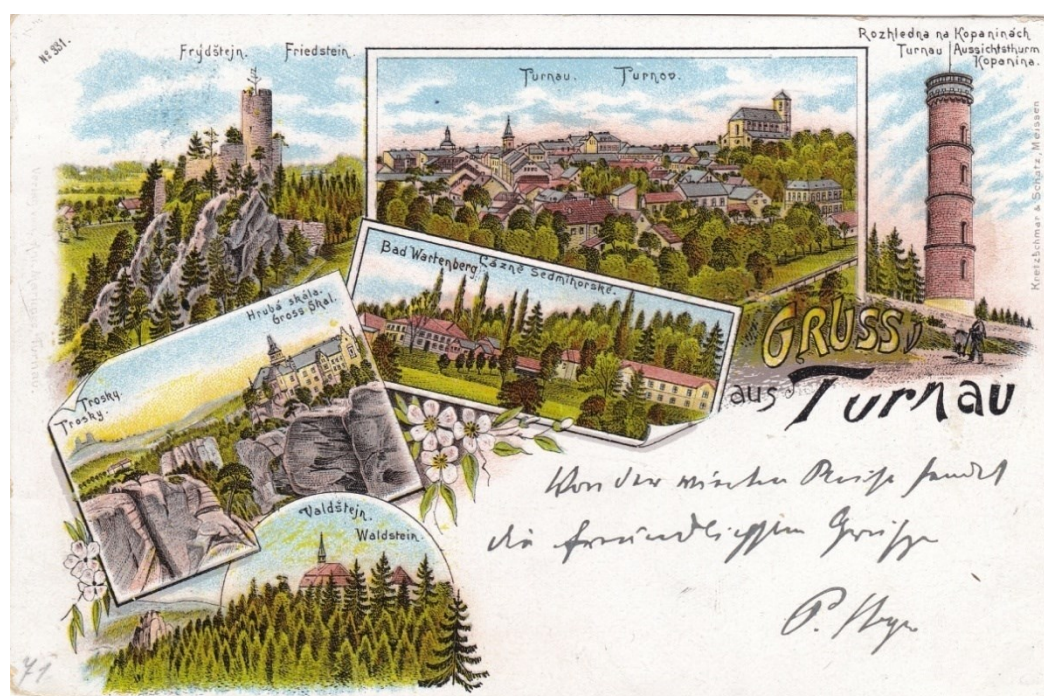 No 331.
Frýdštejn. Friedstein.
Turnau. Turnov.
Rozhledna na Kopaninách
Turnau Aussichtsthurm
Kopanina.
Kretzschmar & Schatz, Meissen
Bad Wartenberg. Lázně Sedmihorské.
Hrubá skála.
Gross Skal.
Trosky.
Trosky.
GRUSS
aus Turnau
Valdštejn.
Waldstein.
Von der Reise sendet
die freundlichsten Grüsse
P.
71